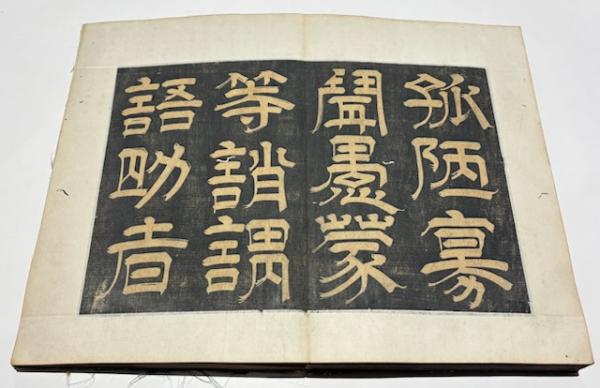 孤陋寡
聞愚蒙
等誚謂
語助者